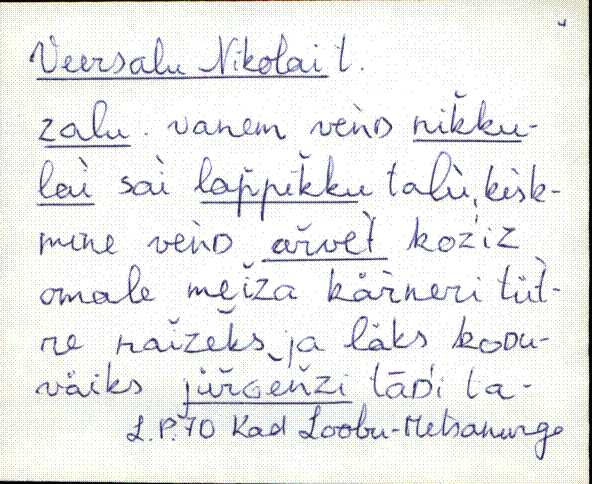 Veersalu Nikolai t.
zalu. vanem venD nikku-
lai sai lappikku talu, kesk-
mine venD arvet koziz
omale meiza kärneri tüt-
re naizeks, ja läks koDu-
väiks jürgenzi tāDi ta-
L.P.70 Kad Loobu-Metsanurga